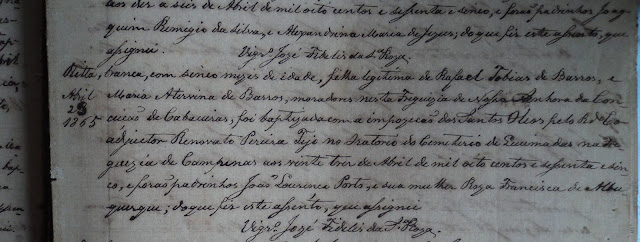 aos dez a seis de Abril de mil oito centos e sessenta e sinco, e forão padrinhos Joa
quim Remigio da Silva, e Alexandrina Maria de Jezus; do que fiz este assento, que
assignei.
Vigr.º Jozé Fidelis da S.ª Roza.
Ritta, branca, com sinco mezes de idade, filha legitima de Rafael Tobias de Barros, e
Abril Maria de Barros, moradores nesta Freguezia de Nossa Senhora da Con
23 ceicão de Cabaceiras; foi baptizada com a impozicão dos Santos Oleos pelo R.do Co
1865 adjector Renovato Pereira Tejo no Oratorio do Cemiterio de Queimadas na Fre
guezia de Campina aos vinte trez de Abril de mil oito centos e sessenta e sin
co, e forão padrinhos João Lourenco Porto, e sua mulher Roza Francisca de Albu
querque; do que fiz este assento, que assignei
Vigr.º Jozé Fidelis da S.ª Roza.